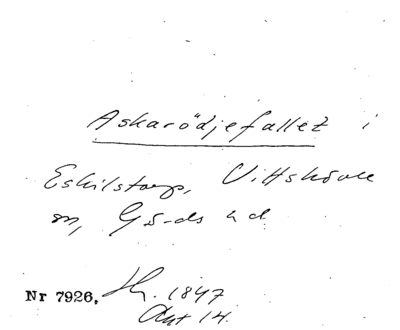 Askarödjefallet i
Eskilstorp, Vittskövle
sn, Gärds hd
Nr 7926. 1847
Akt 14.